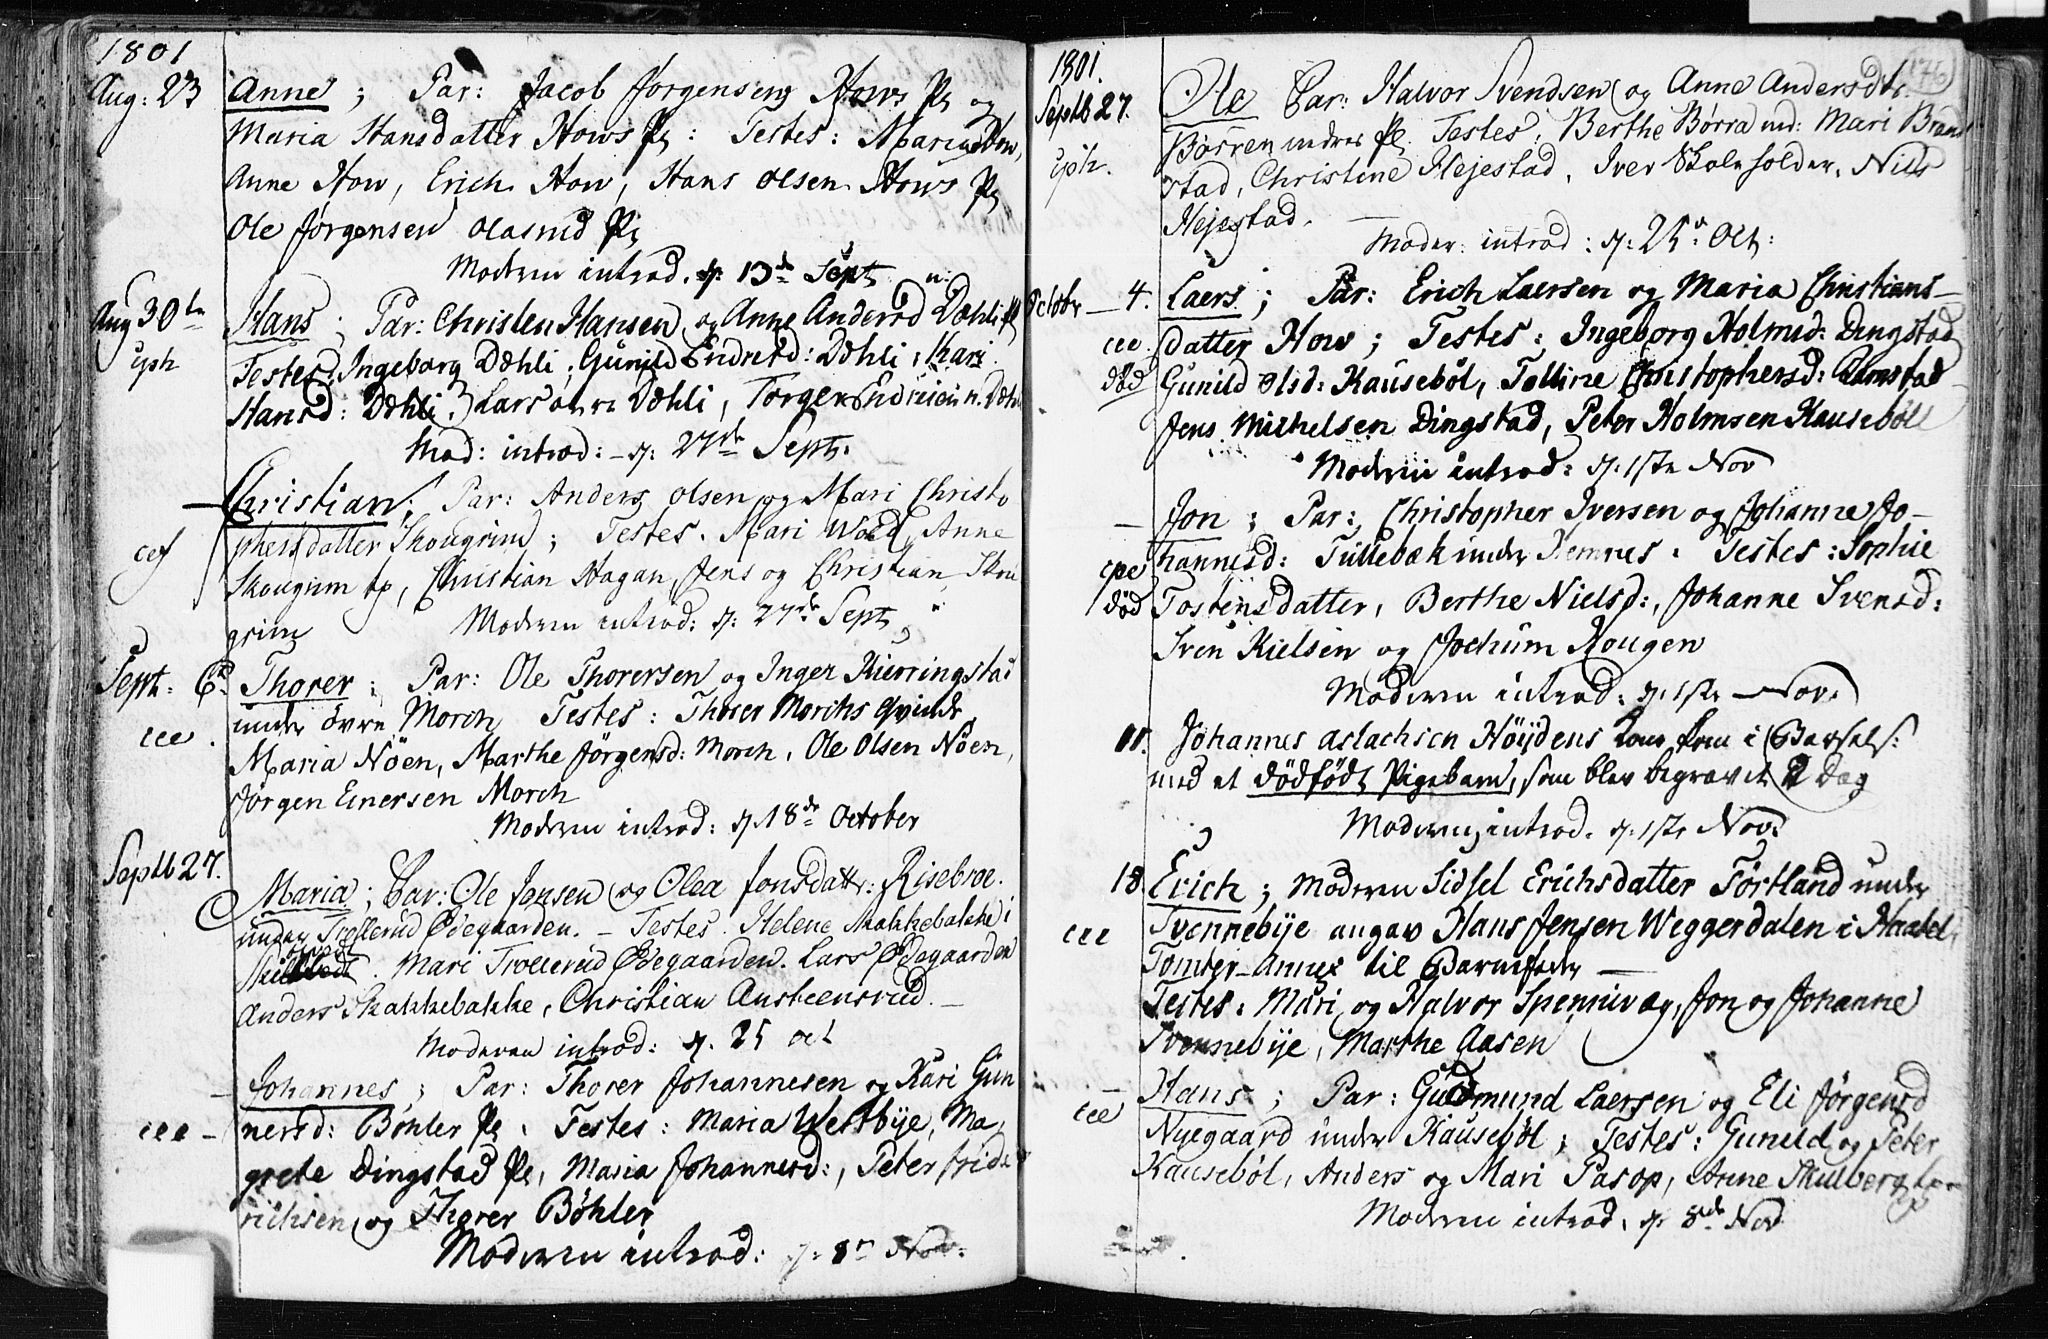 1801
Aug: 23 Anne; Par: Jacob Jørgensen Hows Pl og
Maria Hansdatter Hows Pl: Testes: Maria How,
Anne How, Erich How, Hans Olsen Hows Pl
Ole Jørgensen Olasrud Pl
Moderen introd. d: 13de Sept
Aug 30te Hans; Par: Christen Hansen og Anne Andersd Dæhli Pl
Testes: Ingeborg Dæhli, Gunild Endresd: Dæhli, Kari
Hansd: Dæhli, Lars Dæhli, Torger Dæhli
Mod: introd: d: 27de Sept.
Christian; Par: Anders Olsen og Mari Christo
phersdatter Skougrim; Testes. Mari Anne
Skougrim Christian Hagan, Jens og Christian Skou
grim Moderen introd: d: 27de Sept
Sept: 6te Thorer; Par: Ole Thorersen og Inger Kierringstad
under övre Morch Testes: Thorer Morchs Qvinde
cee Maria Nöen, Marthe Jørgensd: Morch, Ole Olsen Nöen,
Jørgen Einersen Morch
Moderen introd: d 18de October
Septb 27. Maria; Par: Ole Jensen og Olea Jonsdattr: Risebroe
under Trollerud Ødegaarden. – Testes. Helene Skakkebakke i
Mari Trollerud Ødegaarden. Lars Ødegaarden
Anders Skakkebakke, Christian Austeensrud. –
Moderen introd: d. 25 Oct
– Johannes; Par: Thorer Johannesen og Kari Gun
cee – nersd: Bøhler Pl. Testes: Maria Westbye, Ma,
grete Dingstad Pl, Maria Johannesd:, Peter Frid
richsen og Thorer Böhler
Moderen introd: d: 8de Nov:
1801.
Septb 27. Ole Par: Halvor Svendsen og Anne Andersdtr.
Børren nedre Pl. Testes. Berthe Børra ned: Mari Brand
stad, Christine Hejestad, Iver Skoleholder, Niels
Hejestad.
Moder: introd: d: 25de Oct:
October – 4. Laers; Par: Erich Laersen og Maria Christians–
cee datter How; Testes: Ingeborg Holmsd: Dingstad
död Gunild Olsd: Kausebøl, Tolline Christophersd: Ramstad
Jens Michelsen Dingstad, Peter Holmsen Kausebøll
Moderen introd: d. 1ste Nov
– Jon; Par: Christopher Iversen og Johanne Jo–
hannesd: Tullebæk under Hemnes. Testes: Sophie
död Tostensdatter, Berthe Nielsd:, Johanne Svensd:
Sven Kielsen og Jochum Hougen
Moderen introd: d. 1ste Nov.
11. Johannes Aslachsen Høydens Kone kom i Barsels:
med et dödfödt Pigebarn, som blev begravet 2 Dag
Moderen introd. d. 1ste Nov.
18 Erich; Moderen Sidsel Erichsdatter Törtland under
cee Tvennebye angav Hans Jensen Weggerdalen i Haabel,
Tomter–Annex til Barnefader –
Testes: Mari og Halvor Spennivog, Jon og Johanne
Tvennebye, Marthe Aasen
– Hans; Par: Gudmund Laersen og Eli Jørgensd
cee Nyegaard under Kausebøl; Testes: Gunild og Peter
Kausebøl, Anders og Mari Pasop, Anne Skulberg
Moderen introd. d 8de Nov